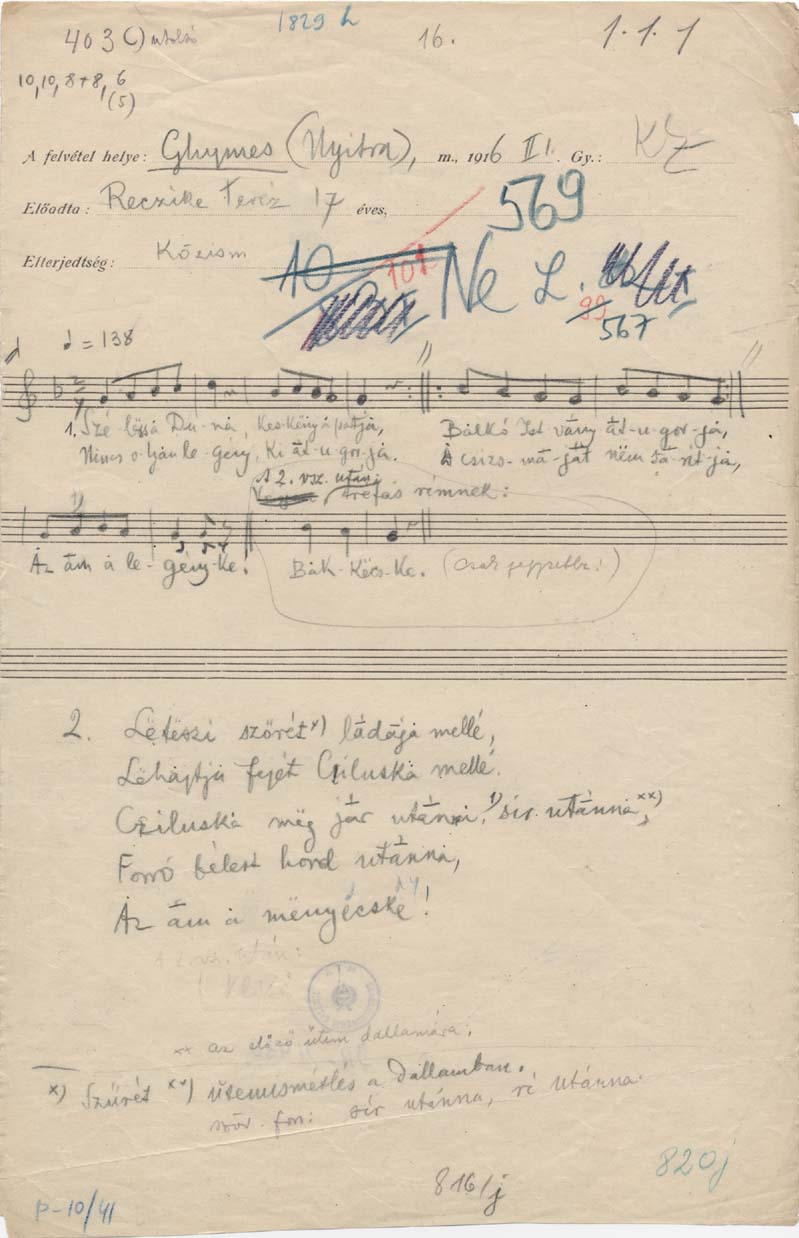 403 c) utolsó 1829 L 16. 1.1.1
10,10, 8+8, 6
(5)
A felvétel helye: Ghymes (Nyitra), m., 1916 III. Gy.: KZ
Előadta: Reczike Teréz 17 éves, 569
Elterjedtség: Közism 10 101 Ne L. 99
567
= 138
1. Szé-lёssä Du-ná, Kes-kёny ä pätjä, Bälkó Ist-vány ät-u-gor-jä,
Nincs o-lyän le-gény, Ki ät-u-gor-jä. Ä csizs-mä-ját nëm sä-rit-jä,
A 2. vsz. után
tréfás rimnek:
Äz äm ä le-gény-ke! Bäk-Këcs-ke. (csak
2. Lëtëszi szörét x) ládájä mellé,
Lëhäjtjä fejét Cziluskä mellé.
Cziluskä mëg jár utánnä, 1) sír utánnä, xx)
Forró bélest hord utánnä,
Äz äm ä mënyécskë!
A 2. vsz. után:
xx az előző ütem dallamára.
x) Szűrét xx) ütemismétlés a dallamban.
sír utánna, rí utánna.
816/j 820j
P-10/41